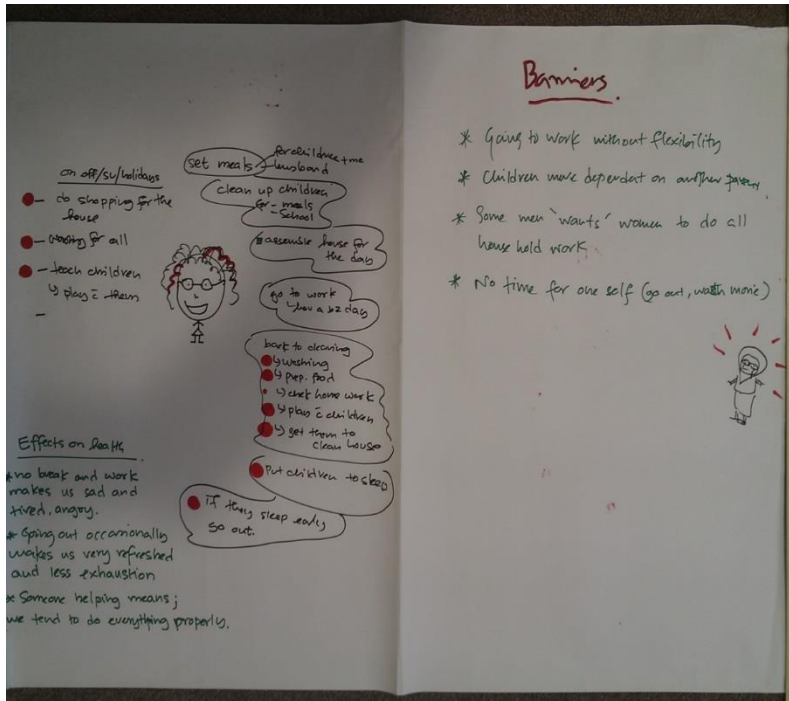 on off/su/holidays
- do shopping for the
house
- cooking for all
- teach children
↳ play c̄ them
-
set meals - for children + me
- husband
clean up children
for - meals
- School
assemble house for
the day
go to work
↳ hav a bz day
back to cleaning
↳ washing
↳ prep. food
↳ chek home work
↳ play c̄ children
↳ get them to
clean house
Put children to sleep
if they sleep early
go out.
Effects on health
* no break and work
makes us sad and
tired, angry.
* Going out occarionally
makes us very refreshed
and less exhaustion
* Someone helping means;
we tend to do everything properly.
Barriers.
* Going to work without flexibility
* Children more dependent on another
* Some men 'wants' women to do all
house hold work
* No time for one self (go out, watch movie)